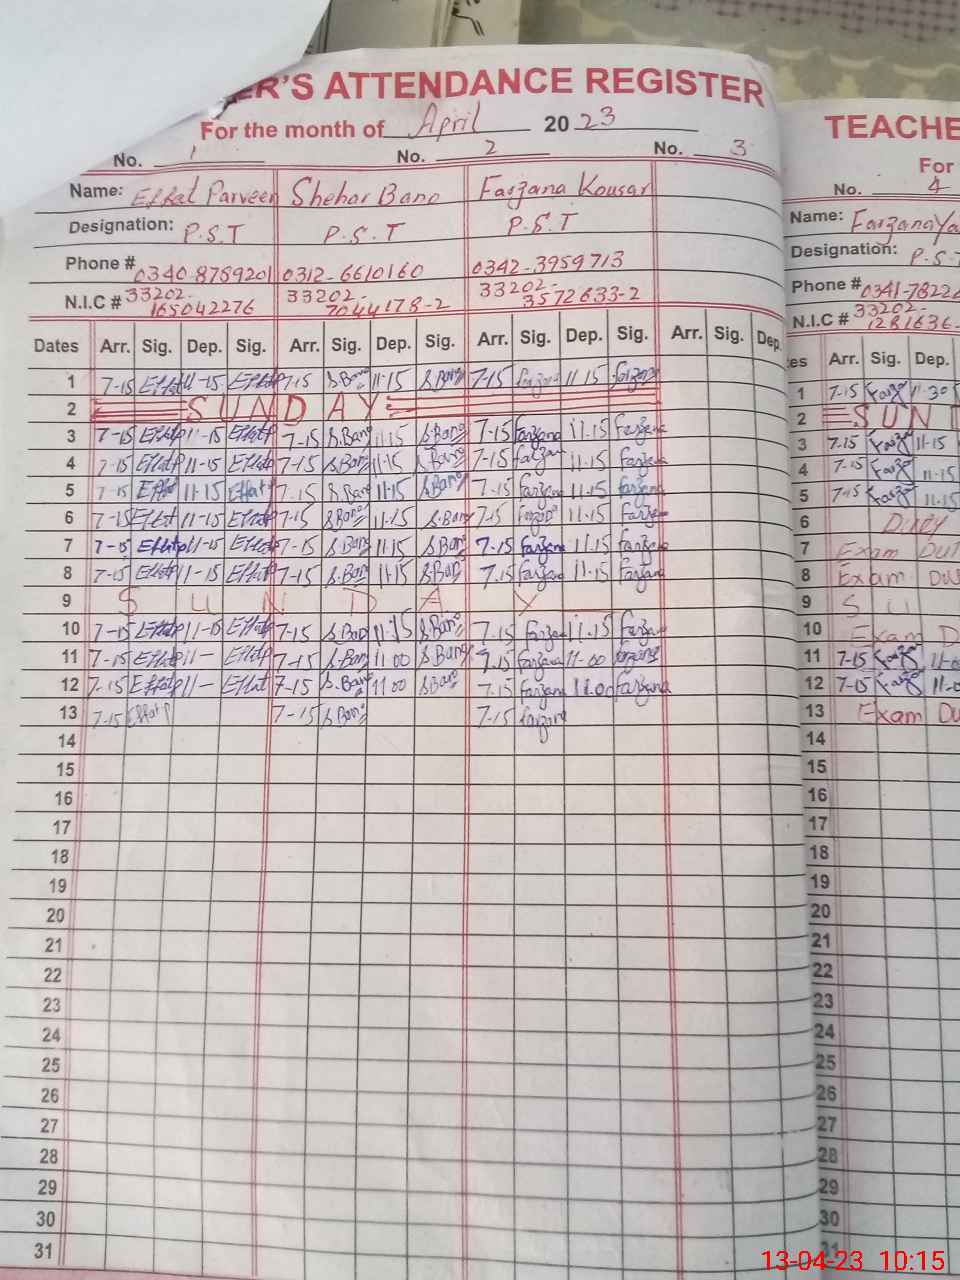 ER'S ATTENDANCE REGISTER
For the month of April 2023
No. 1 No. 2 No. 3
Name: Effat Parveen Shehar Bano Farzana Kousar
Designation: P.S.T P.S.T P.S.T
Phone # 0340-8759201 0312-6610160 0342-3959713
N.I.C # 33202- 33202- 33202-
165042276 7044178-2 3572633-2
Dates Arr. Sig. Dep. Sig. Arr. Sig. Dep. Sig. Arr. Sig. Dep. Sig. Arr. Sig. Dep.
1 7-15 Effatp 11-15 Effatp 7-15 S.Bano 11-15 S.Bano 7-15 Farzana 11-15 Farzana
2 SUNDAY
3 7-15 Effatp 11-15 Effatp 7-15 S.Bano 11-15 S.Bano 7-15 Farzana 11-15 Farzana
4 7-15 Effatp 11-15 Effatp 7-15 S.Bano 11-15 S.Bano 7-15 Farzana 11-15 Farzana
5 7-15 Effat 11-15 Effat 7-15 S.Bano 11-15 S.Bano 7-15 Farzana 11-15 Farzana
6 7-15 Effat 11-15 Effatp 7-15 S.Bano 11-15 S.Bano 7-15 Farzana 11-15 Farzana
7 7-15 Effatp 11-15 Effatp 7-15 S.Bano 11-15 S.Bano 7-15 Farzana 11-15 Farzana
8 7-15 Effatp 11-15 Effatp 7-15 S.Bano 11-15 S.Bano 7-15 Farzana 11-15 Farzana
9 SUNDAY
10 7-15 Effatp 11-15 Effatp 7-15 S.Bano 11-15 S.Bano 7-15 Farzana 11-15 Farzana
11 7-15 Effatp 11- Effatp 7-15 S.Bano 11 00 S.Bano 7-15 Farzana 11-00 Farzana
12 7-15 Effatp 11- Effat 7-15 S.Bano 11 00 S.Bano 7-15 Farzana 11.00 Farzana
13 7-15 Effatp 7-15 S.Bano 7-15 Farzana
14
15
16
17
18
19
20
21
22
23
24
25
26
27
28
29
30
31
TEACHE
For
No. 4
Name: Farzana Ya
Designation: P.S.T
Phone # 0341-7822
N.I.C # 33202-
1281636-
es Arr. Sig. Dep.
1 7-15 Farz 11-30
2 SUN
3 7-15 Farz 11-15
4 7-15 Farz 11-15
5 7-15 Farz 11-15
6 Duty
7 Exam Dut
8 Exam Du
9 SU
10 Exam D
11 7-15 Farz 11-0
12 7-15 Farz 11-0
13 Exam Du
14
15
16
17
18
19
20
21
22
23
24
25
26
27
28
29
30
31
13-04-23 10:15